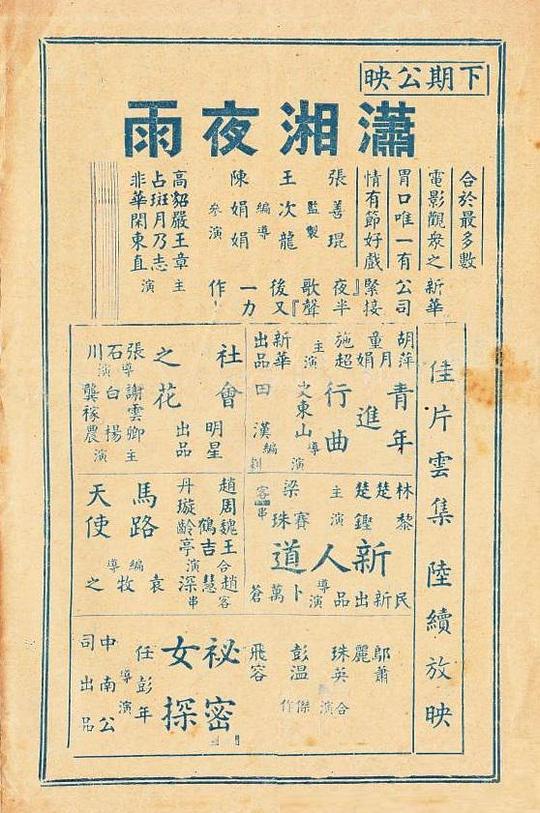 下期公映
瀟湘夜雨
合於最多數
電影觀衆之
胃口唯一有
情有節好戲
新華
公司
緊接
『夜半
歌聲』
後又
一力
作
張善琨
監製
王次龍
編導
陳娟娟
參演
高貂嚴王章
占斑月乃志
非華閑東直
主演
佳片雲集陸續放映
胡萍
童月娟
施超
主演
青年進行曲
新華出品
史東山導演
田漢編劇
社會之花
明星出品
張石川導演
謝雲卿
白楊
龔稼農
主演
林楚楚
黎鏗
主演
梁賽珠
客串
新人道
民新出品
卜萬蒼
導演
趙丹
周璇
魏鶴齡
王吉亭
合演
趙慧深
客串
馬路天使
袁牧之
編導
鄔麗珠
蕭英
彭飛
溫容
合演
祕密女探
任彭年
導演
中南公司出品